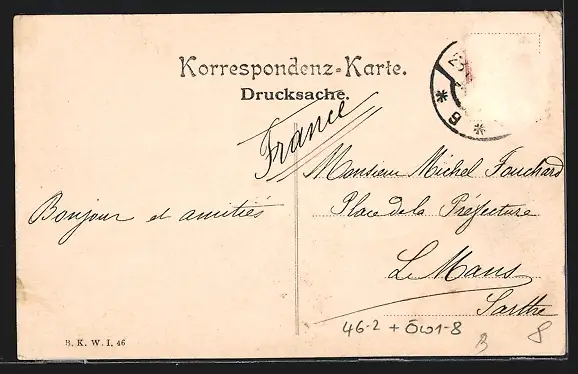 Korrespondenz-Karte.
Drucksache.
France
Monsieur Michel Fouchard
Place de la Préfecture
Le Mans
Sarthe
Bonjour et amitiés
46-2 + ÖW1-8
B
8
B. K. W. I. 46